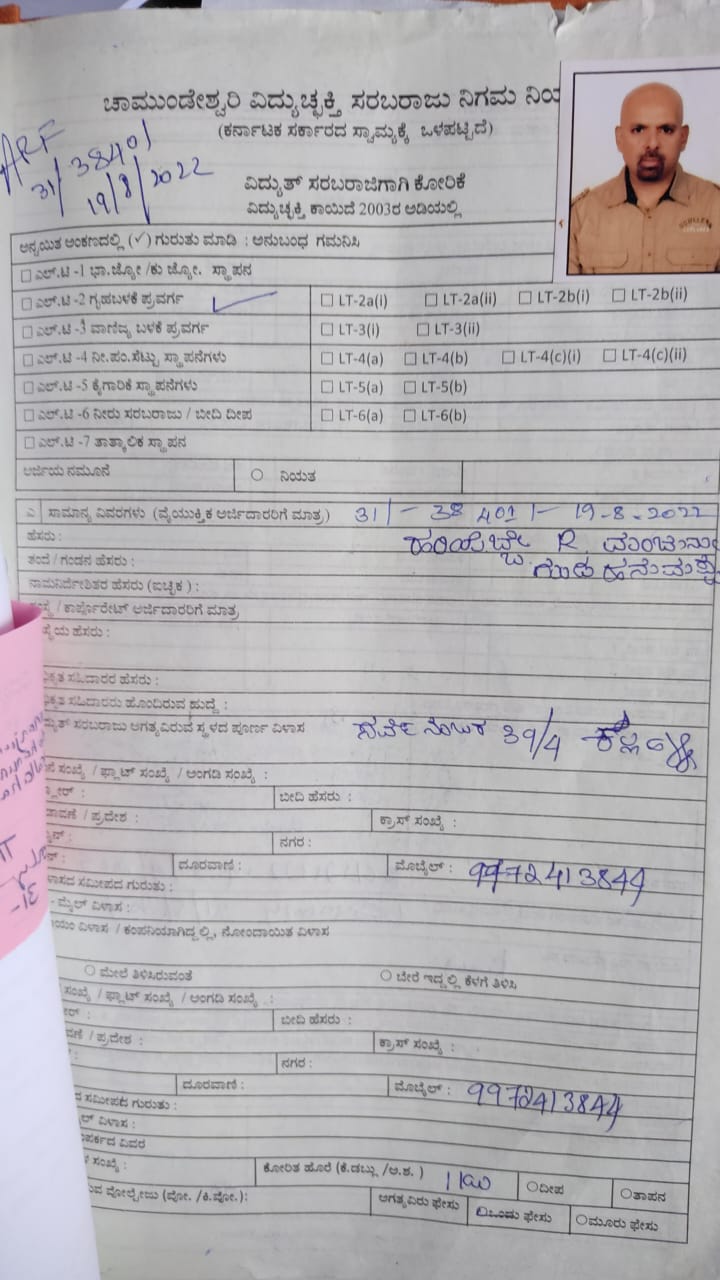 ಚಾಮುಂಡೇಶ್ವರಿ ವಿದ್ಯುಚ್ಛಕ್ತಿ ಸರಬರಾಜು ನಿಗಮ ನಿಯ
(ಕರ್ನಾಟಕ ಸರ್ಕಾರದ ಸ್ವಾಮ್ಯಕ್ಕೆ ಒಳಪಟ್ಟಿದೆ)
ARF
31/38401
19/8/2022
ವಿದ್ಯುತ್ ಸರಬರಾಜಿಗಾಗಿ ಕೋರಿಕೆ
ವಿದ್ಯುಚ್ಛಕ್ತಿ ಕಾಯಿದೆ 2003ರ ಅಡಿಯಲ್ಲಿ
ಅನ್ವಯಿತ ಅಂಕಣದಲ್ಲಿ (✓) ಗುರುತು ಮಾಡಿ : ಅನುಬಂಧ ಗಮನಿಸಿ
☐ ಎಲ್.ಟಿ -1 ಭಾ.ಜ್ಯೋ /ಕು ಜ್ಯೋ. ಸ್ಥಾಪನ
☐ ಎಲ್.ಟಿ -2 ಗೃಹಬಳಕೆ ಪ್ರವರ್ಗ ✓ ☐ LT-2a(i) ☐ LT-2a(ii) ☐ LT-2b(i) ☐ LT-2b(ii)
☐ ಎಲ್.ಟಿ -3 ವಾಣಿಜ್ಯ ಬಳಕೆ ಪ್ರವರ್ಗ ☐ LT-3(i) ☐ LT-3(ii)
☐ ಎಲ್.ಟಿ -4 ನೀ.ಪಂ.ಸೆಟ್ಟು ಸ್ಥಾಪನೆಗಳು ☐ LT-4(a) ☐ LT-4(b) ☐ LT-4(c)(i) ☐ LT-4(c)(ii)
☐ ಎಲ್.ಟಿ -5 ಕೈಗಾರಿಕೆ ಸ್ಥಾಪನೆಗಳು ☐ LT-5(a) ☐ LT-5(b)
☐ ಎಲ್.ಟಿ -6 ನೀರು ಸರಬರಾಜು / ಬೀದಿ ದೀಪ ☐ LT-6(a) ☐ LT-6(b)
☐ ಎಲ್.ಟಿ -7 ತಾತ್ಕಾಲಿಕ ಸ್ಥಾಪನ
ಅರ್ಜಿಯ ನಮೂನೆ ○ ನಿಯತ
ಎ ಸಾಮಾನ್ಯ ವಿವರಗಳು (ವೈಯುಕ್ತಿಕ ಅರ್ಜಿದಾರರಿಗೆ ಮಾತ್ರ) 31/- 38 401/- 19-8-2022
ಹೆಸರು : R
ತಂದೆ / ಗಂಡನ ಹೆಸರು :
ನಾಮನಿರ್ದೇಶಿತರ ಹೆಸರು (ಐಚ್ಛಿಕ) :
/ ಕಾರ್ಪೊರೇಟ್ ಅರ್ಜಿದಾರರಿಗೆ ಮಾತ್ರ
ಯ ಹೆಸರು :
ಕೃತ ಸಹಿದಾರರ ಹೆಸರು :
ಕೃತ ಸಹಿದಾರರು ಹೊಂದಿರುವ ಹುದ್ದೆ :
ತ್ ಸರಬರಾಜು ಅಗತ್ಯವಿರುವ ಸ್ಥಳದ ಪೂರ್ಣ ವಿಳಾಸ ಸರ್ವೆ ನಂಬರ 39/4
ಸಂಖ್ಯೆ / ಫ್ಲಾಟ್ ಸಂಖ್ಯೆ / ಅಂಗಡಿ ಸಂಖ್ಯೆ :
ಬೀದಿ ಹೆಸರು :
ಾವಣೆ / ಪ್ರದೇಶ : ಕ್ರಾಸ್ ಸಂಖ್ಯೆ :
ನಗರ :
ದೂರವಾಣಿ : ಮೊಬೈಲ್ : 9972413844
ಾಸದ ಸಮೀಪದ ಗುರುತು :
- ಮೈಲ್ ವಿಳಾಸ :
ಯಂ ವಿಳಾಸ / ಕಂಪನಿಯಾಗಿದ್ದಲ್ಲಿ, ನೋಂದಾಯಿತ ವಿಳಾಸ
○ ಮೇಲೆ ತಿಳಿಸಿರುವಂತೆ ○ ಬೇರೆ ಇದ್ದಲ್ಲಿ ಕೆಳಗೆ ತಿಳಿಸಿ
ಸಂಖ್ಯೆ / ಫ್ಲಾಟ್ ಸಂಖ್ಯೆ / ಅಂಗಡಿ ಸಂಖ್ಯೆ :
ಬೀದಿ ಹೆಸರು :
ವಣೆ / ಪ್ರದೇಶ : ಕ್ರಾಸ್ ಸಂಖ್ಯೆ :
ನಗರ :
ದೂರವಾಣಿ : ಮೊಬೈಲ್ : 9972413844
ದ ಸಮೀಪದ ಗುರುತು :
ಲ್ ವಿಳಾಸ :
ಪರ್ಕದ ವಿವರ
ಸಂಖ್ಯೆ : ಕೋರಿತ ಹೊರೆ (ಕೆ.ಡಬ್ಲು /ಅ.ಶ. ) 1 KW ○ದೀಪ ○ತಾಪನ
ುವ ವೋಲ್ಟೇಜು (ವೋ. /ಕಿ.ವೋ.): ಅಗತ್ಯವಿರು ಫೇಸು ○ಒಂದು ಫೇಸು ○ಮೂರು ಫೇಸು